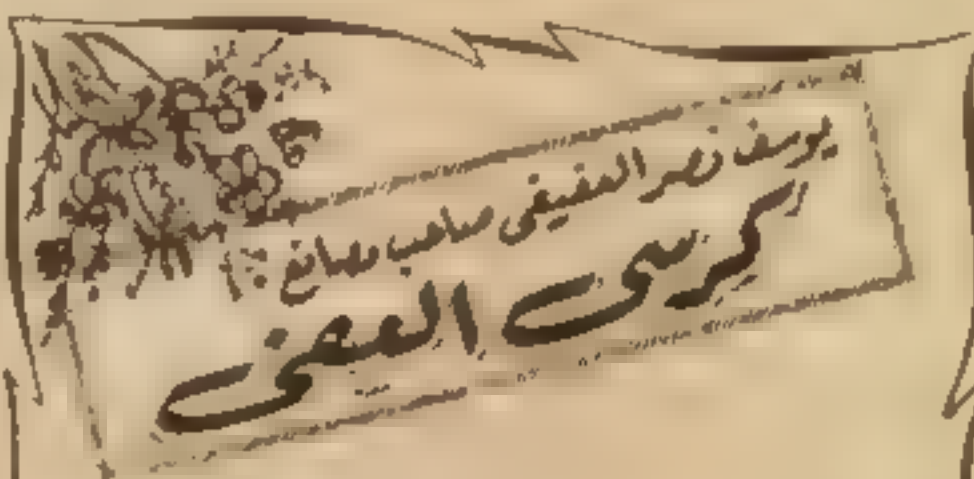 يوسف نصر العفيفي صاحب مصانع :
كرسي العفيفي